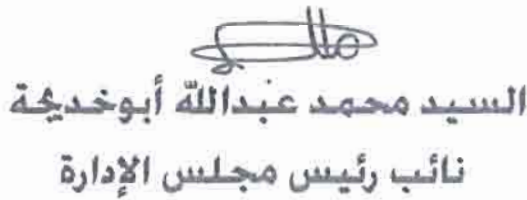 السيد محمد عبدالله أبوخديجة
نائب رئيس مجلس الإدارة